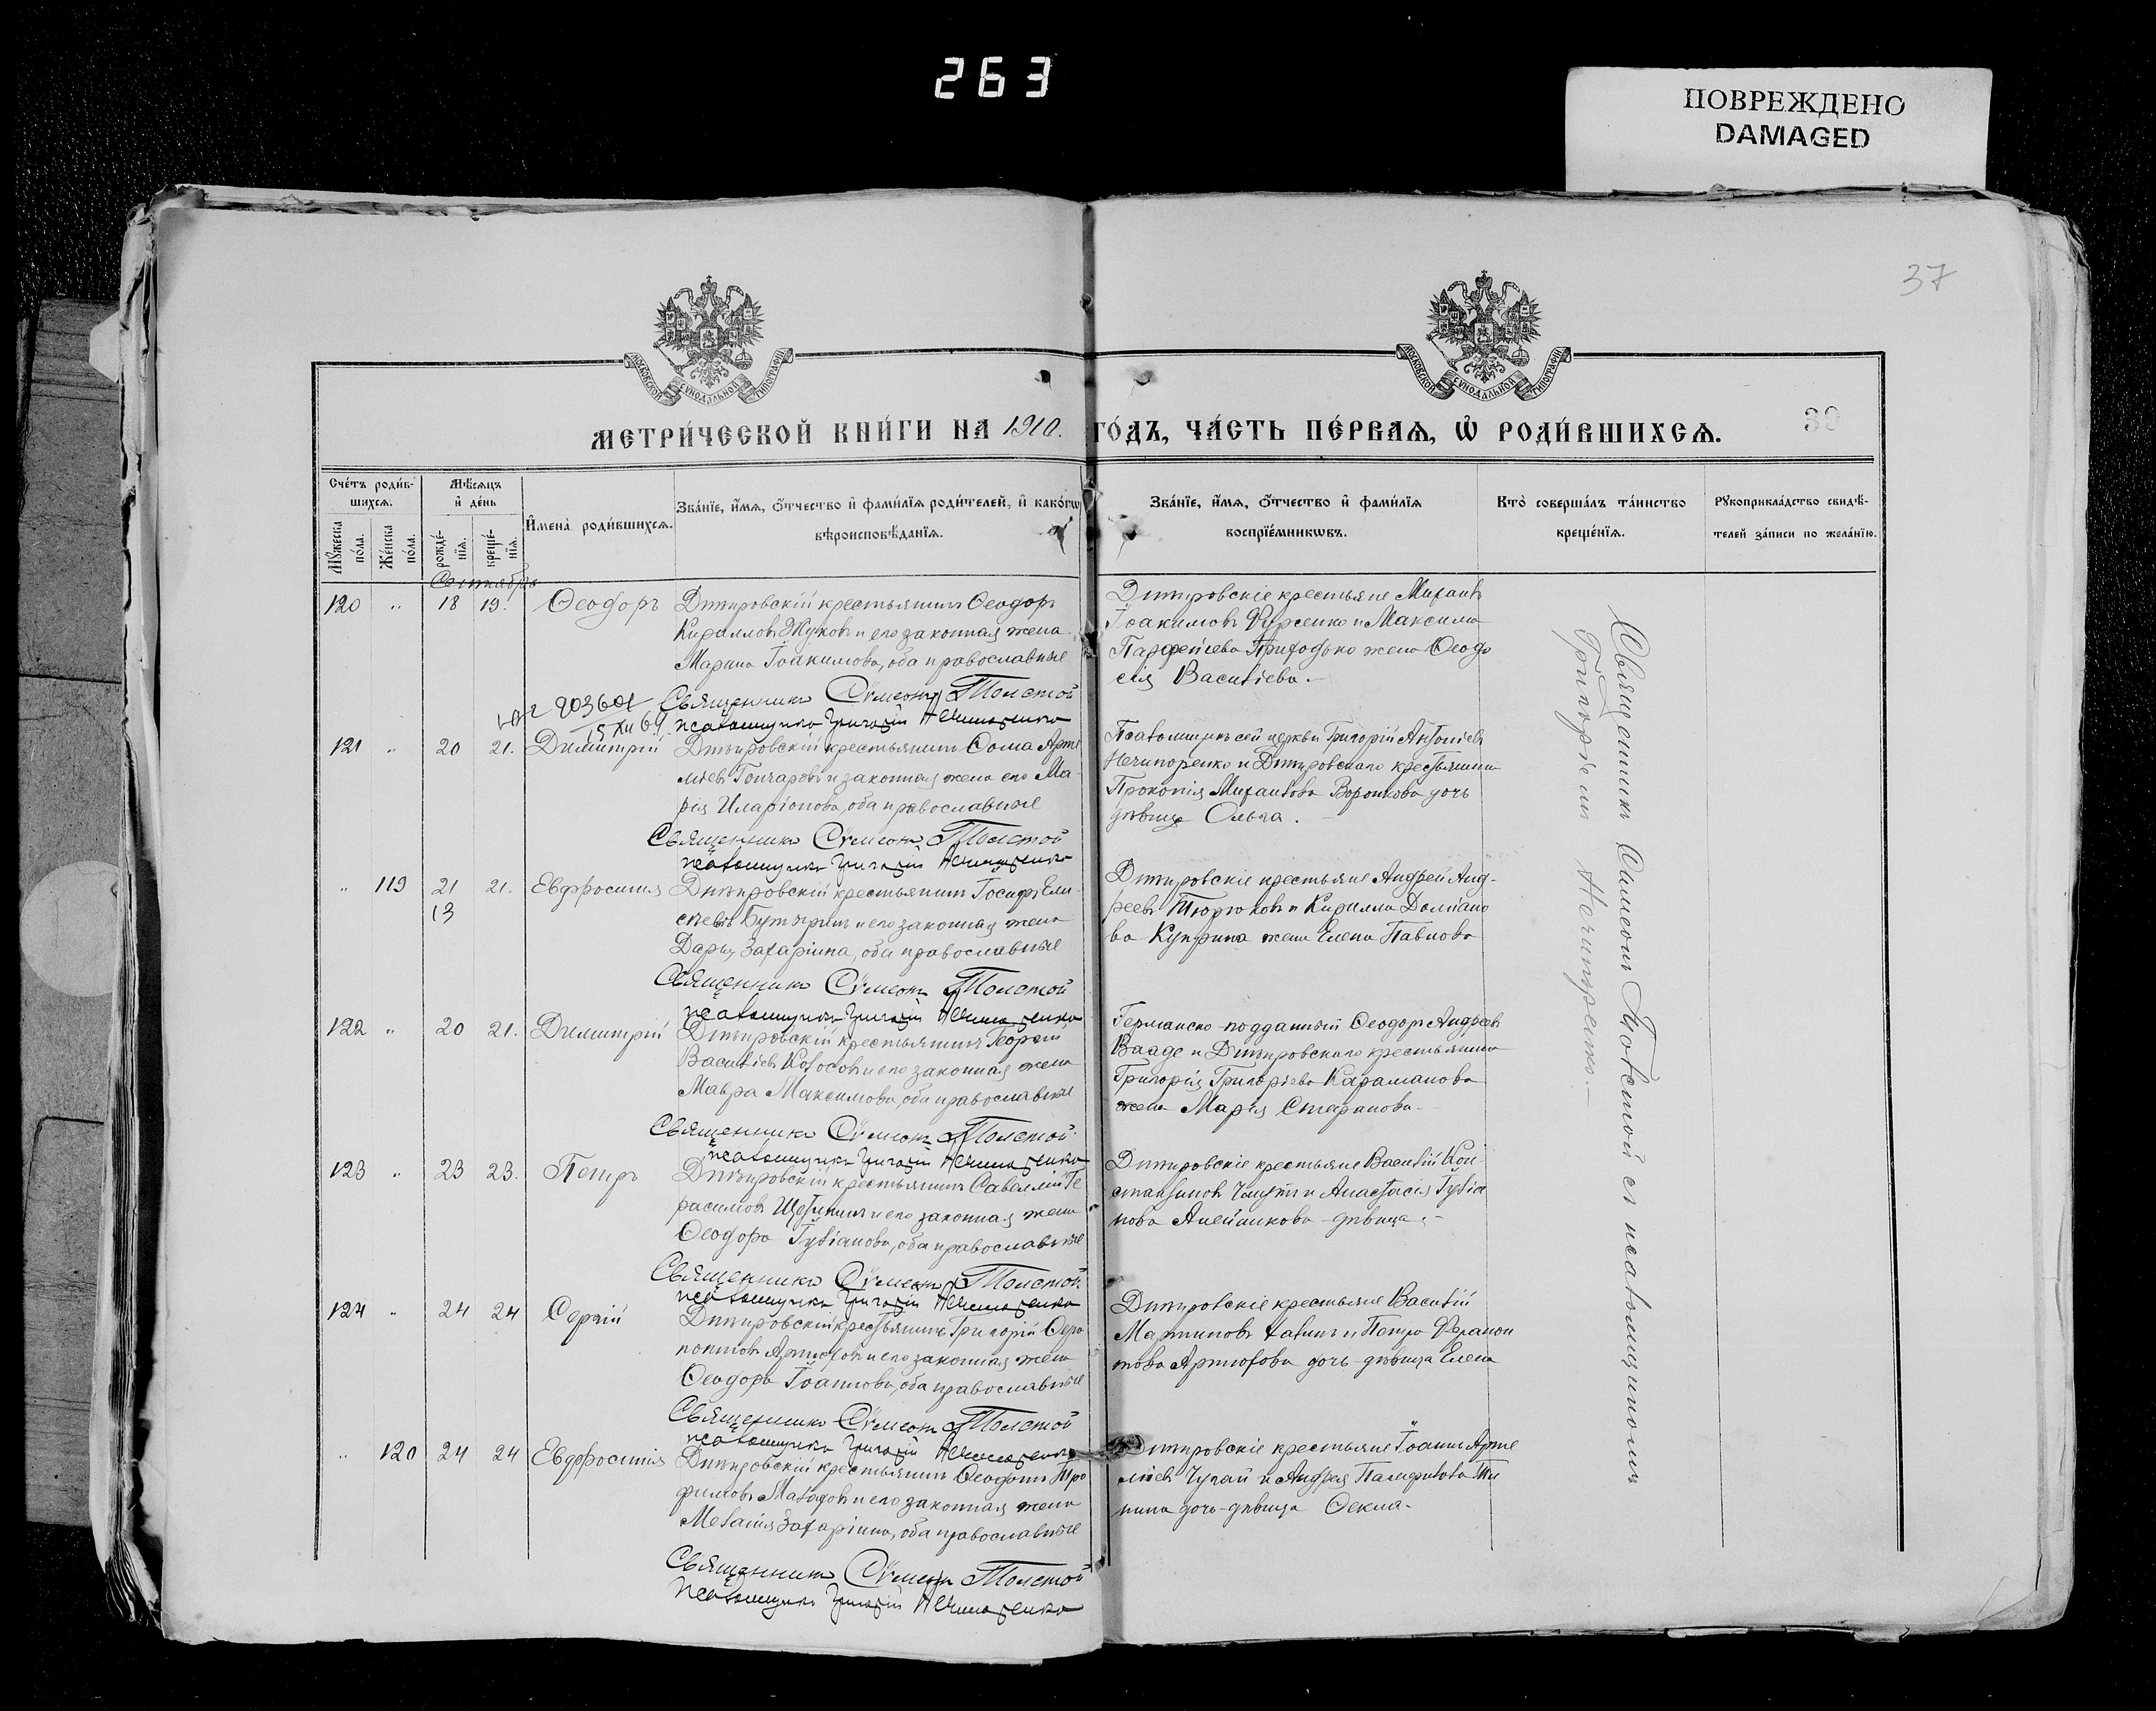 263
ПОВРЕЖДЕНО
DAMAGED
37
МОСКОВСКОЙ СѴНОДАЛЬНОЙ ТИПОГРАФІИ
МОСКОВСКОЙ СѴНОДАЛЬНОЙ ТИПОГРАФІИ
МЕТРИ́ЧЕСКОЙ КНИ́ГИ НА 1910. ГО́ДЪ, ЧА́СТЬ ПЕ́РВАѦ, Ѡ҆ РОДИ́ВШИХСѦ.
39
Сче́тъ роди́в-
шихсѧ.
Мꙋ́жеска по́ла.
Же́нска по́ла.
Мѣ́сѧцъ
и҆ де́нь
рожде́-
нїѧ.
креще́-
нїѧ.
И҆мена̀ роди́вшихсѧ.
Зва́нїе, и҆́мѧ, ѻ҆́тчество и҆ фами́лїѧ роди́телей, и҆ како́гѡ
вѣроисповѣ́данїѧ.
Зва́нїе, и҆́мѧ, ѻ҆́тчество и҆ фами́лїѧ
воспрїе́мникѡвъ.
Кто̀ соверша́лъ та́инство
креще́нїѧ.
Рꙋкоприкла́дство свидѣ́-
телей за́писи по жела́нїю.
Сентябрь
120 „ 18 19. Ѳеодоръ
Дитировскій крестьянинъ Ѳеодоръ
Кирилловъ Жуковъ и его законная жена
Марина Іоакимова, оба православные
Священникъ Сѵмеонъ Толстой
псаломщикъ Григорій Нечипоренко
Дитировскіе крестьяне Михаилъ
Іоакимовъ Фурсенко и Максима
Парфеніева Приходько жена Ѳеодо
сія Васильева.
903601
15 XII 69
121 „ 20 21. Димитрій
Дитировскій крестьянинъ Ѳома Арте
міевъ Гончаровъ и законная жена его Ма-
рія Иларіонова, оба православные
Священникъ Сѵмеонъ Толстой
псаломщикъ Григорій Нечипоренко
Псаломщикъ сей церкви Григорій Антоніевъ
Нечипоренко и Дитировскаго крестьянина
Прокопія Михаилова Воронкова дочь
дѣвица Ольга.
„ 119 21 21. Евфросинія
13
Дитировскій крестьянинъ Іосифъ Ели-
сѣевъ и его законная жена
Дарья Захаріина, оба православные
Священникъ Сѵмеонъ Толстой
псаломщикъ Григорій Нечипоренко
Дитировскіе крестьяне Андрей Анд-
реевъ Тюрюковъ и Кирилла Доміано
ва Куприна жена Елена Павлова
122 „ 20 21. Димитрій
Дитировскій крестьянинъ Георгій
Васильевъ Колосовъ и его законная жена
Мавра Максимова, оба православные
Священникъ Сѵмеонъ Толстой
псаломщикъ Григорій Нечипоренко
Германско-подданный Ѳеодоръ Андреевъ
Вааде и Дитировскаго крестьянина
Григорія Григорьева Караманова
жена Марія Стефанова.
123 „ 23 23. Петръ
Дитировскій крестьянинъ Савеллій Ге
расимовъ Щетининъ и его законная жена
Ѳеодора Іуліанова, оба православные
Священникъ Сѵмеонъ Толстой
псаломщикъ Григорій Нечипоренко
Дитировскіе крестьяне Василій Кон-
стантиновъ и Анастасія Іуліа
нова Алейникова дѣвица.
124 „ 24 24 Сергій
Дитировскій крестьянинъ Григорій Ѳера
понтовъ Артюховъ и его законная жена
Ѳеодора Іоаннова, оба православные
Священникъ Сѵмеонъ Толстой
псаломщикъ Григорій Нечипоренко
Дитировскіе крестьяне Василій
Мартиновъ и Петра Ферапон
това Артюхова дочь-дѣвица Елена
„ 120 24 24 Евфросинія
Дитировскій крестьянинъ Ѳеодотъ Тро
фимовъ Малаховъ и его законная жена
Меланія Захаріина, оба православные
Священникъ Сѵмеонъ Толстой
псаломщикъ Григорій Нечипоренко
Дитировскіе крестьяне Іоаннъ Арте
міевъ Чугай и Андрея Памфилова Тю
нина дочь-дѣвица Ѳекла.
Священникъ Симеонъ Толстой съ псаломщикомъ
Григоріемъ Нечипоренко.